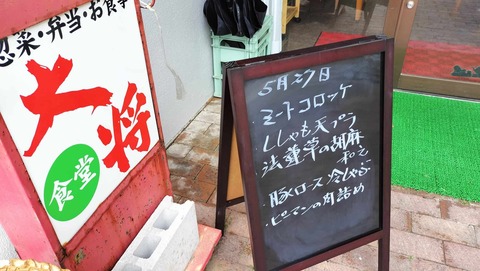 惣菜・弁当・お食事
大将
食堂
5月27日
ミートコロッケ
ししゃも天プラ
法蓮草の胡麻
和え
・豚ロース冷しゃぶ
・ピーマンの肉詰め